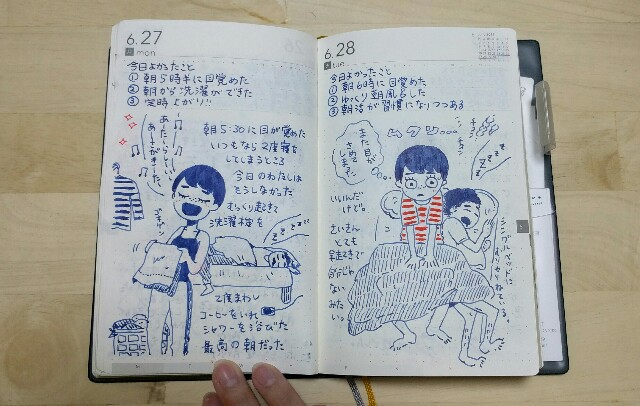 6.27
mon
今日よかったこと
① 朝5時半に目覚めた
② 朝から洗濯ができた
③ 定時上がり!!
朝5:30に目が覚めた
いつもなら2度寝を
してしまうところ
今日のわたしは
もうしなかった
むっくり起きて
洗濯機を
あたーらしーい
あーさがきーた
zzzz
2度まわし
コーヒーをいれ
シャワーを浴びた
最高の朝だった
6.28
tue
今日よかったこと
① 朝6時に目覚めた
② ゆっくり朝風呂した
③ 朝活が習慣になりつつある
ムクリ…
また目が
さめて
しまった
チュン
チュン
zzzz
いいんだ
けどさ。
さいきん
とても
早起きで
じぶんじゃ
ない
みた
いっ
シングルベッドに
むりやりねている。